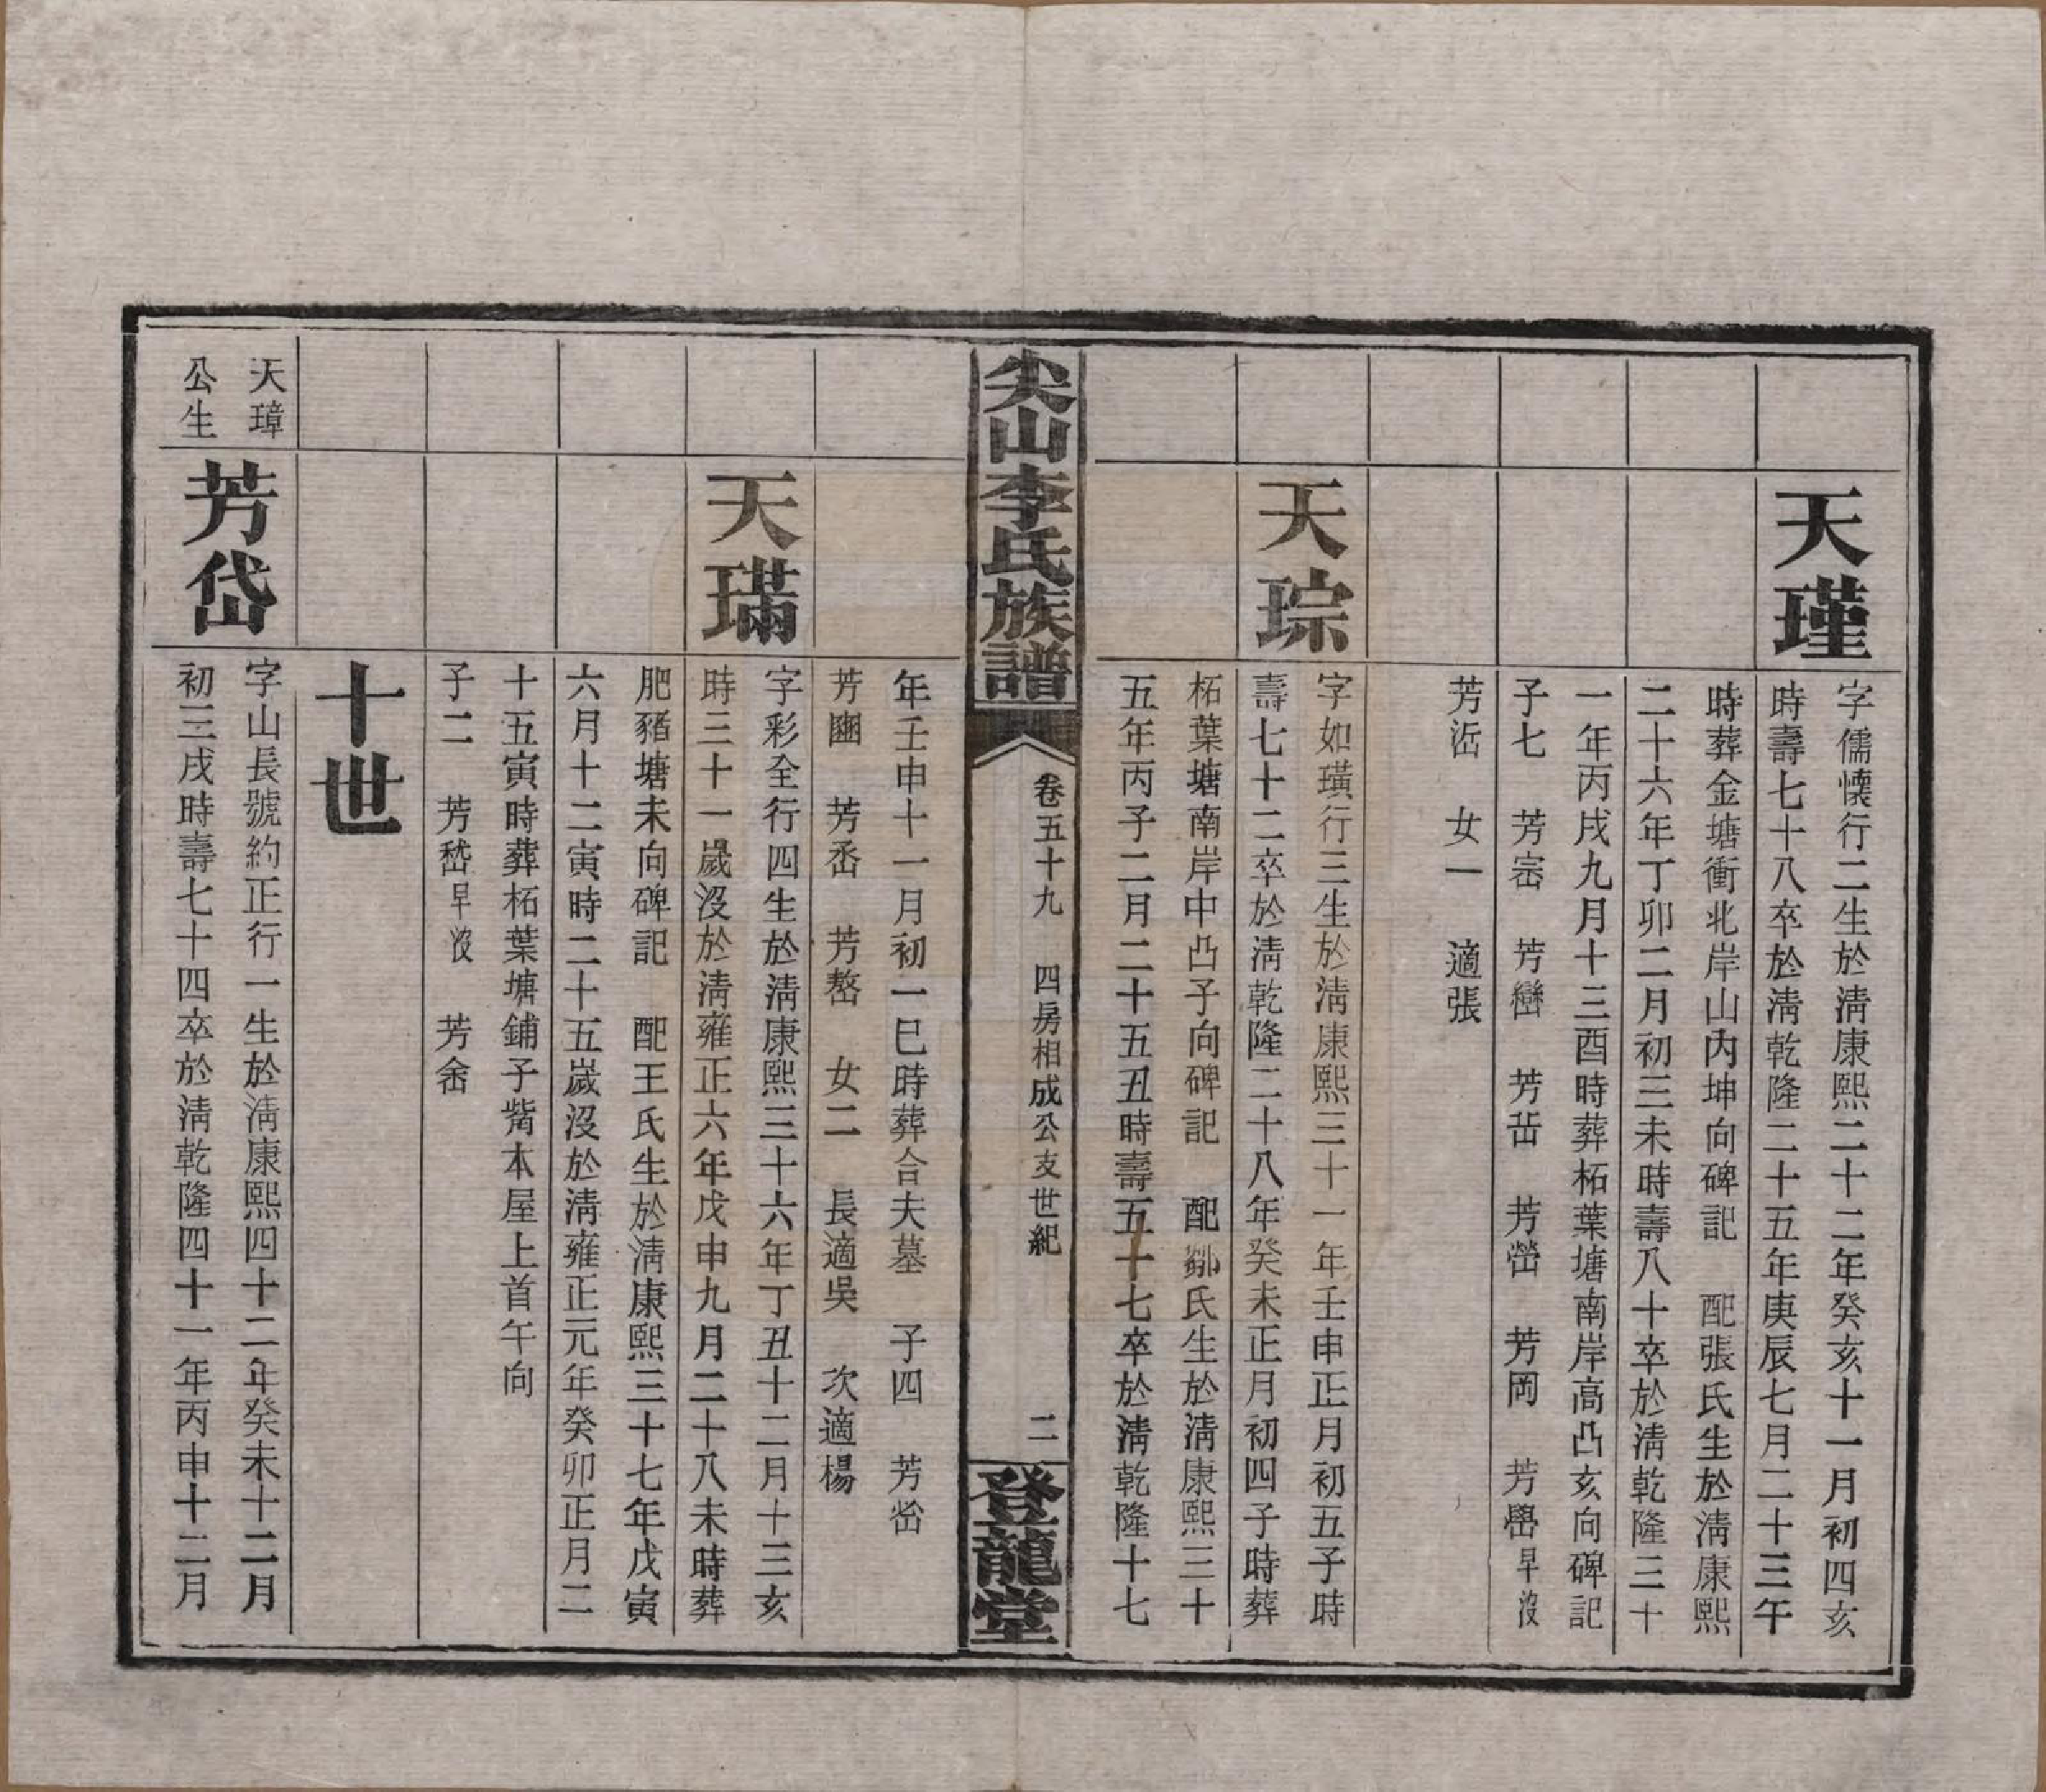 天瑾
字儒懷行二生於淸康熙二十二年癸亥十一月初四亥
時壽七十八卒於淸乾隆二十五年庚辰七月二十三午
時葬金塘衝北岸山內坤向碑記 配張氏生於淸康熙
二十六年丁卯二月初三未時壽八十卒於淸乾隆三十
一年丙戌九月十三酉時葬柘葉塘南岸高凸亥向碑記
子七 芳崈 芳巒 芳 芳 芳岡 芳嶨早沒
芳 女一 適張
天琮
字如璜行三生於淸康熙三十一年壬申正月初五子時
壽七十二卒於淸乾隆二十八年癸未正月初四子時葬
柘葉塘南岸中凸子向碑記 配鄒氏生於淸康熙三十
五年丙子二月二十五丑時壽五十七卒於淸乾隆十七
尖山李氏族譜
卷五十九 四房相成公支世紀
二
登龍堂
年壬申十一月初一巳時葬合夫墓 子四 芳
芳豳 芳 芳嶅 女二 長適吳 次適楊
天璊
字彩全行四生於淸康熙三十六年丁丑十二月十三亥
時三十一歲沒於淸雍正六年戊申九月二十八未時葬
肥豬塘未向碑記 配王氏生於淸康熙三十七年戊寅
六月十二寅時二十五歲沒於淸雍正元年癸卯正月二
十五寅時葬柘葉塘鋪子觜本屋上首午向
子二 芳嵇早沒 芳畬
十世
天璋
公生
芳岱
字山長號約正行一生於淸康熙四十二年癸未十二月
初三戌時壽七十四卒於淸乾隆四十一年丙申十二月